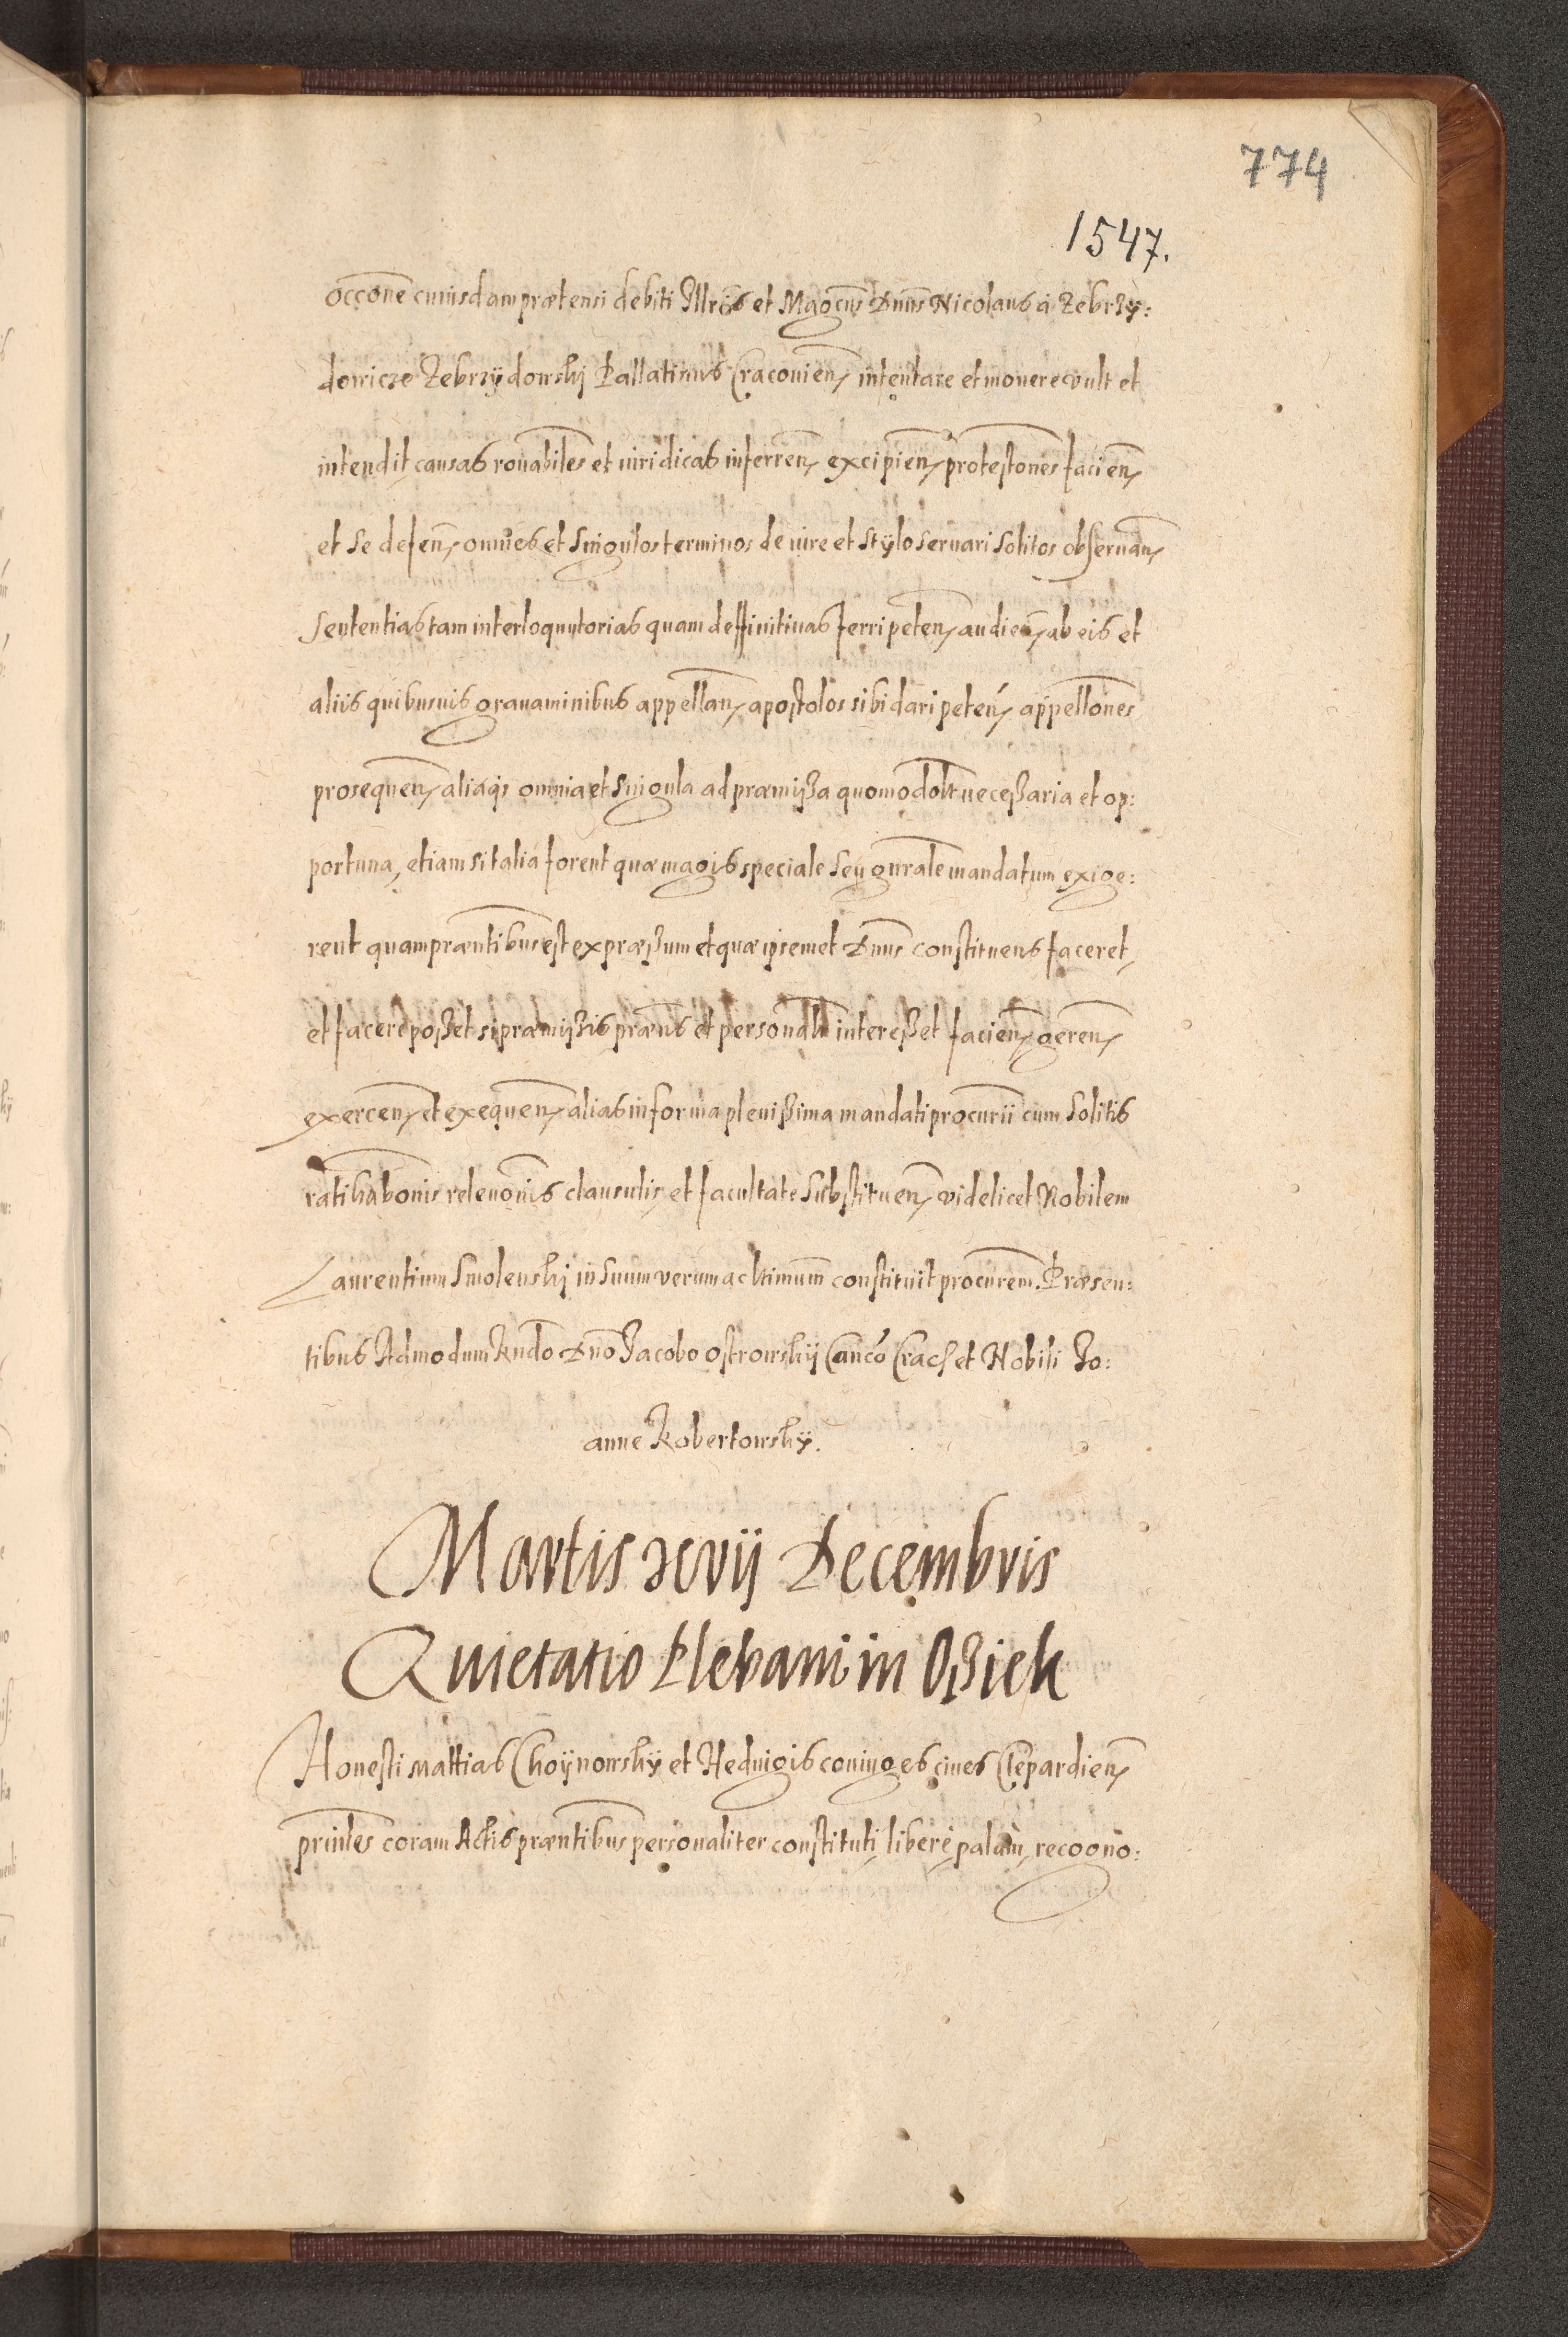 774
1547.
occõne cuiusdam prætensi debiti Illrīs et Magcus Dnus Nicolaus à Zebrzy:
dowicze Zebrzÿdowskj Pallatinus Cracovien̄ intentare et mouere vult et
intendit, causas rōnabiles et iuridicas inferren̄ excipien̄ protestōnes facien̄
et se defen̄ omnes et singulos terminos de iure et stÿlo seruari solitos obseruan̄
sententias tam interloquutorias quam deffinitiuas ferri peten̄ audien̄ ab eis et
aliis quibusuis grauaminibus appellan̄ apostolos sibi dari peten̄ appellōnes
prosequen̄ aliaqs omnia et singula ad præmißa quomodolt neceßaria et op:
portuna, etiam si talia forent quæ magis speciale seu gnrale mandatum exige:
rent quam præntibus est expræßum et quæ ipsemet Dnus constituens faceret,
et facere poßet si præmißis præns et personalr intereßet facien̄ geren̄
exercen̄ et exequen̄ alias in forma plenißima mandati procurii cum solitis
ratihabōnis releuōnis clausulis, et facultate substituen̄ videlicet Nobilem
Laurentium Smolenskj in suum verum ac ltimum constituit procurem. Præsen:
tibus Admodum Rndo Dno Jacobo ostrowskÿ Canco Crac et Nobili Jo:
anne Kobertowskÿ.
Martis xvij Decembris
Quietatio Plebani in Oßiek
Honesti Mattias Choÿnowskÿ et Hedvigis coniuges ciues Clepardien̄
prinles coram Actis præntibus personaliter constituti, liberè, palàm, recogno: